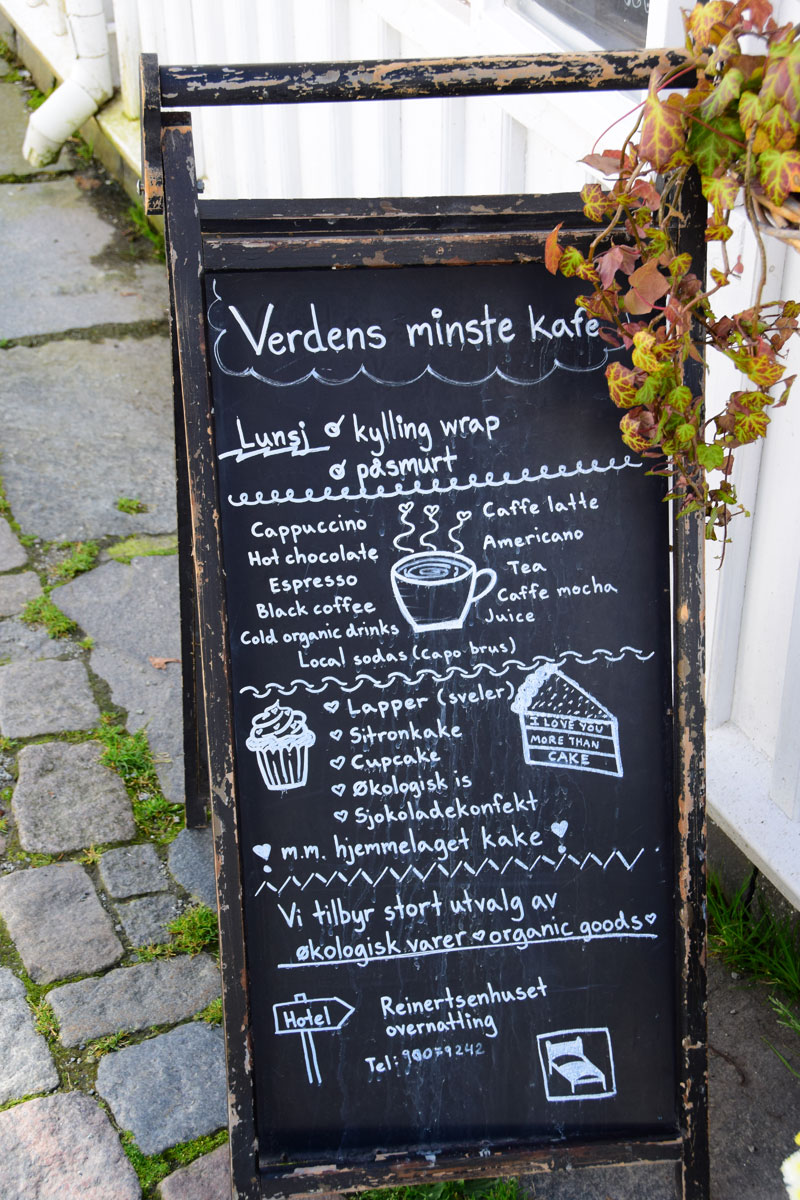 Verdens minste kafe
Lunsj kylling wrap
påsmurt
Cappuccino
Hot chocolate
Espresso
Black coffee
Cold organic drinks
Caffe latte
Americano
Tea
Caffe mocha
Juice
Local sodas (capo brus)
Lapper (sveler)
Sitronkake
Cupcake
Økologisk is
Sjokoladekonfekt
I LOVE YOU
MORE THAN
CAKE
m.m. hjemmelaget kake
Vi tilbyr stort utvalg av
økologisk varer organic goods
Hotel
Reinertsenhuset
overnatting
Tel: 90079242